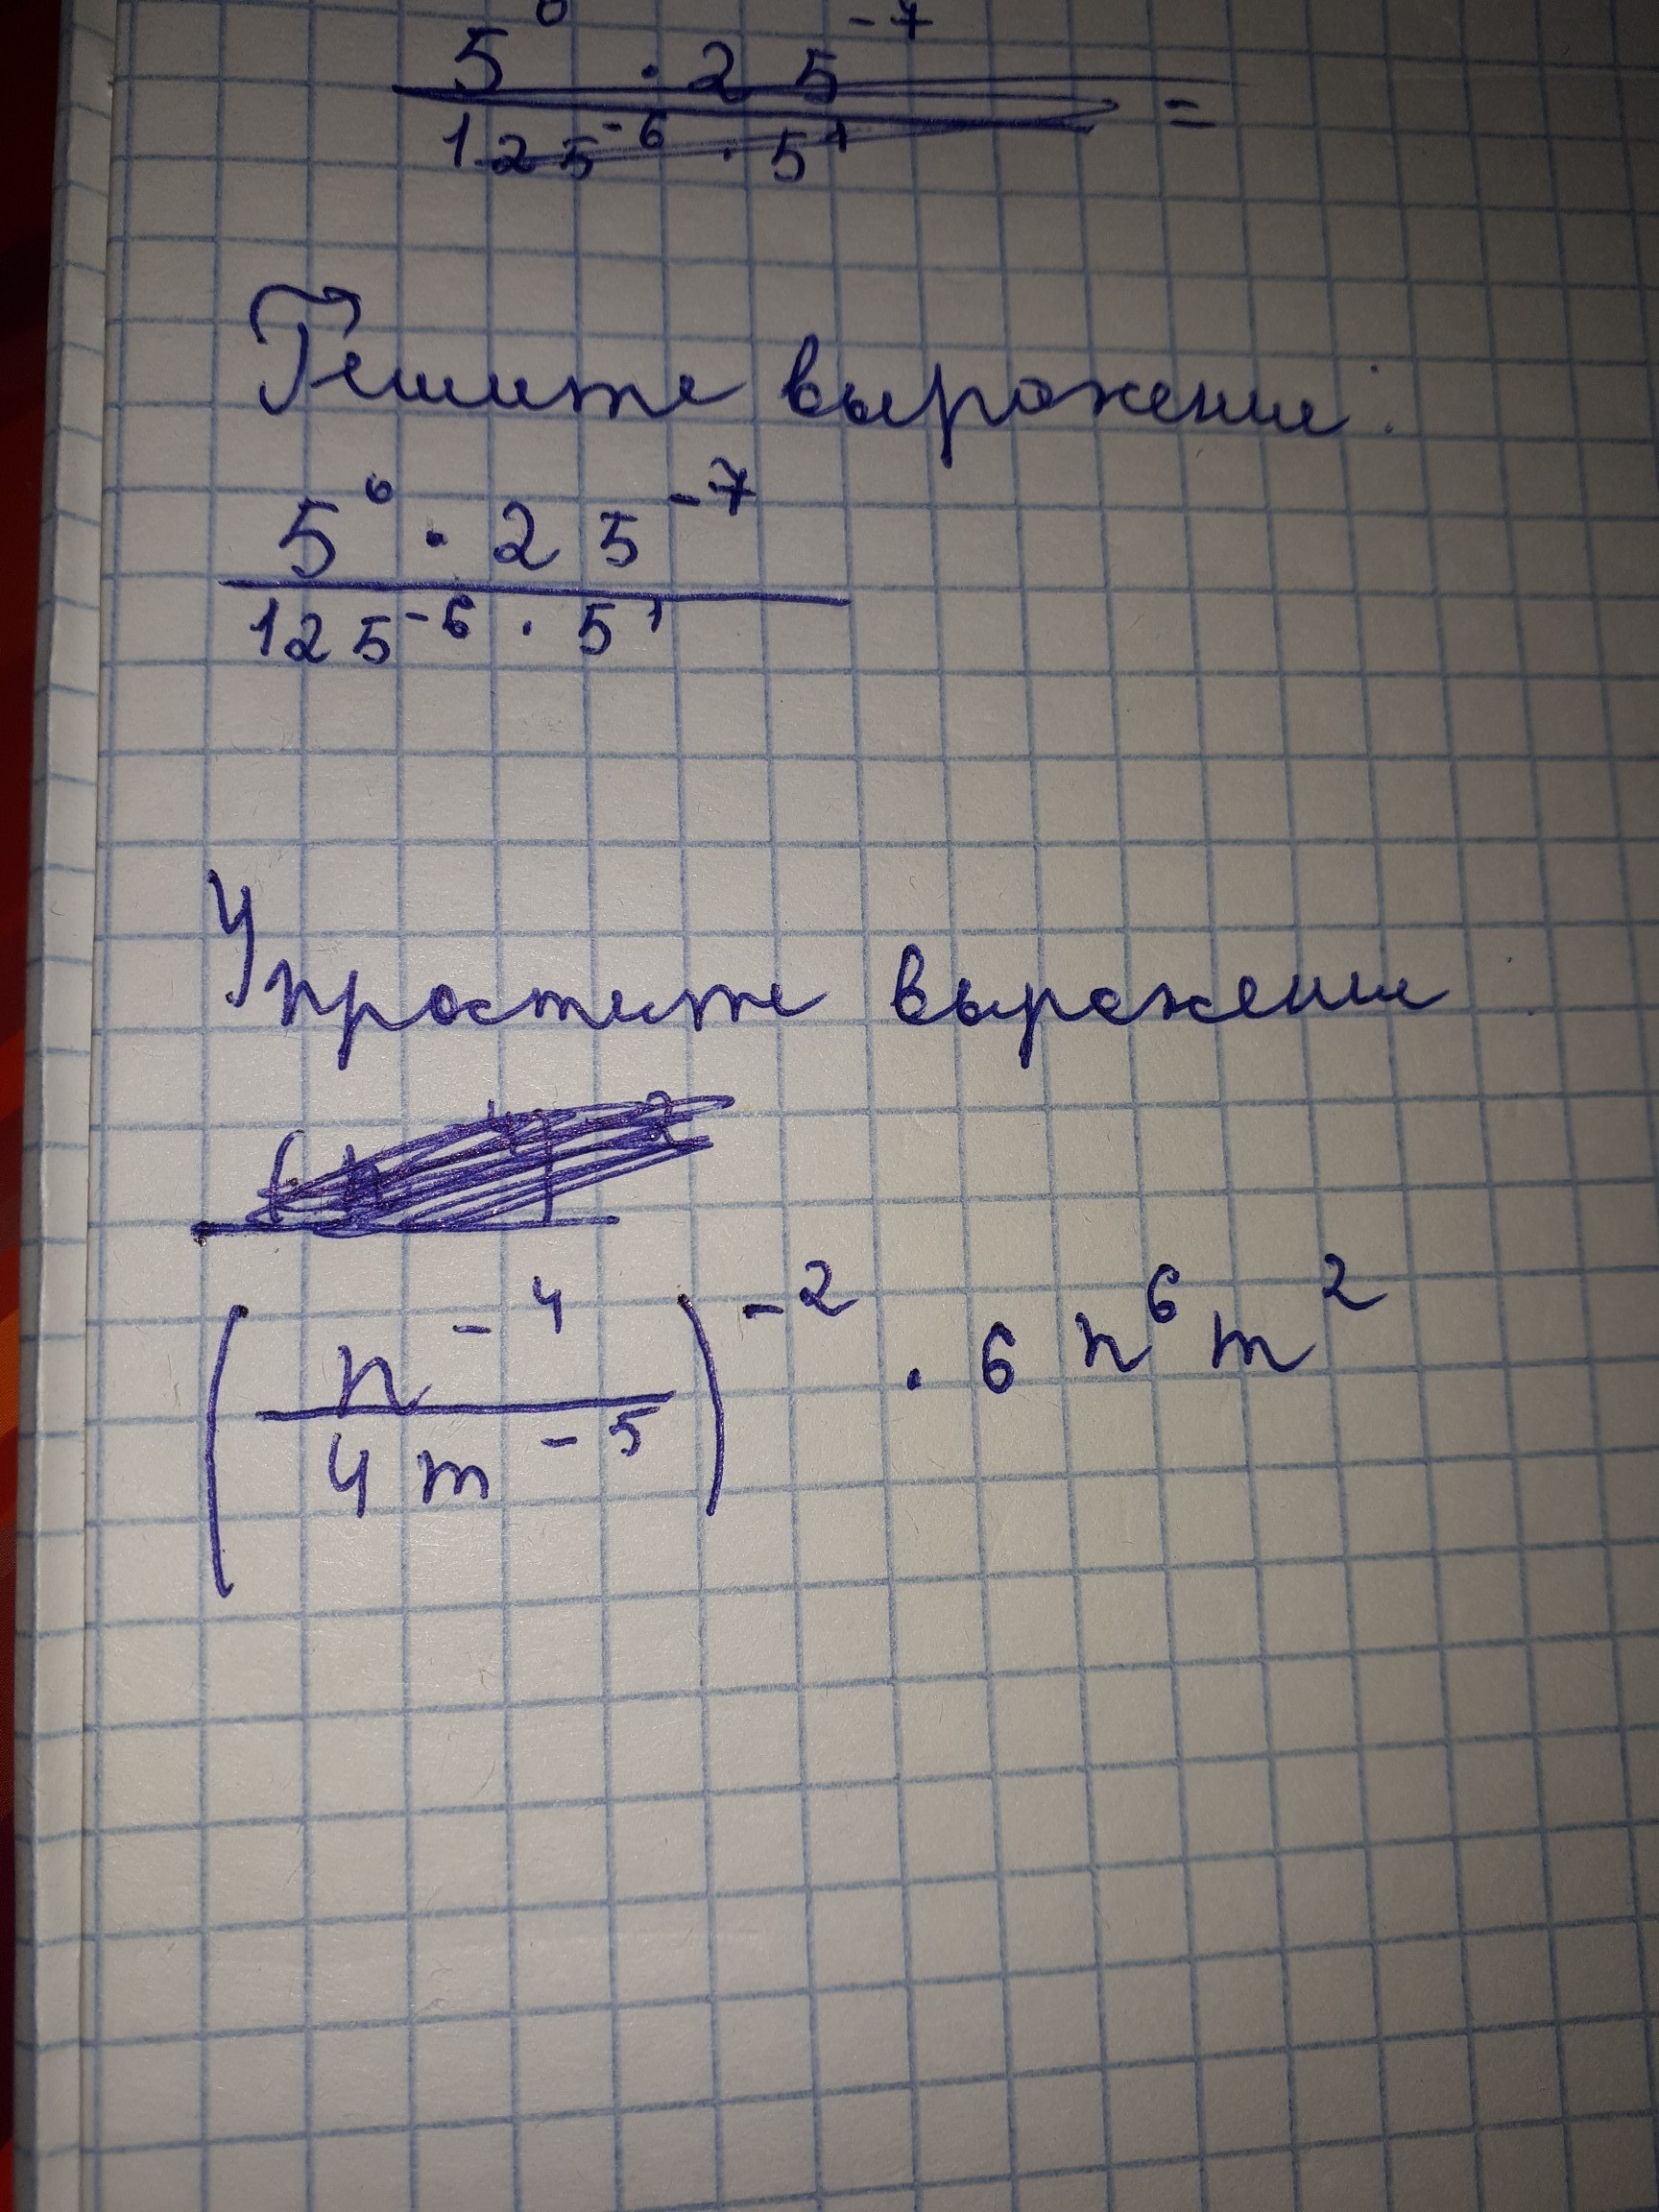 5⁰ · 25⁻⁷
125⁻⁶ · 5¹ =
Решите выражение:
5⁰ · 25⁻⁷
125⁻⁶ · 5¹
Упростите выражение
(n⁻⁴ / 4m⁻⁵)⁻² · 6n⁶m²